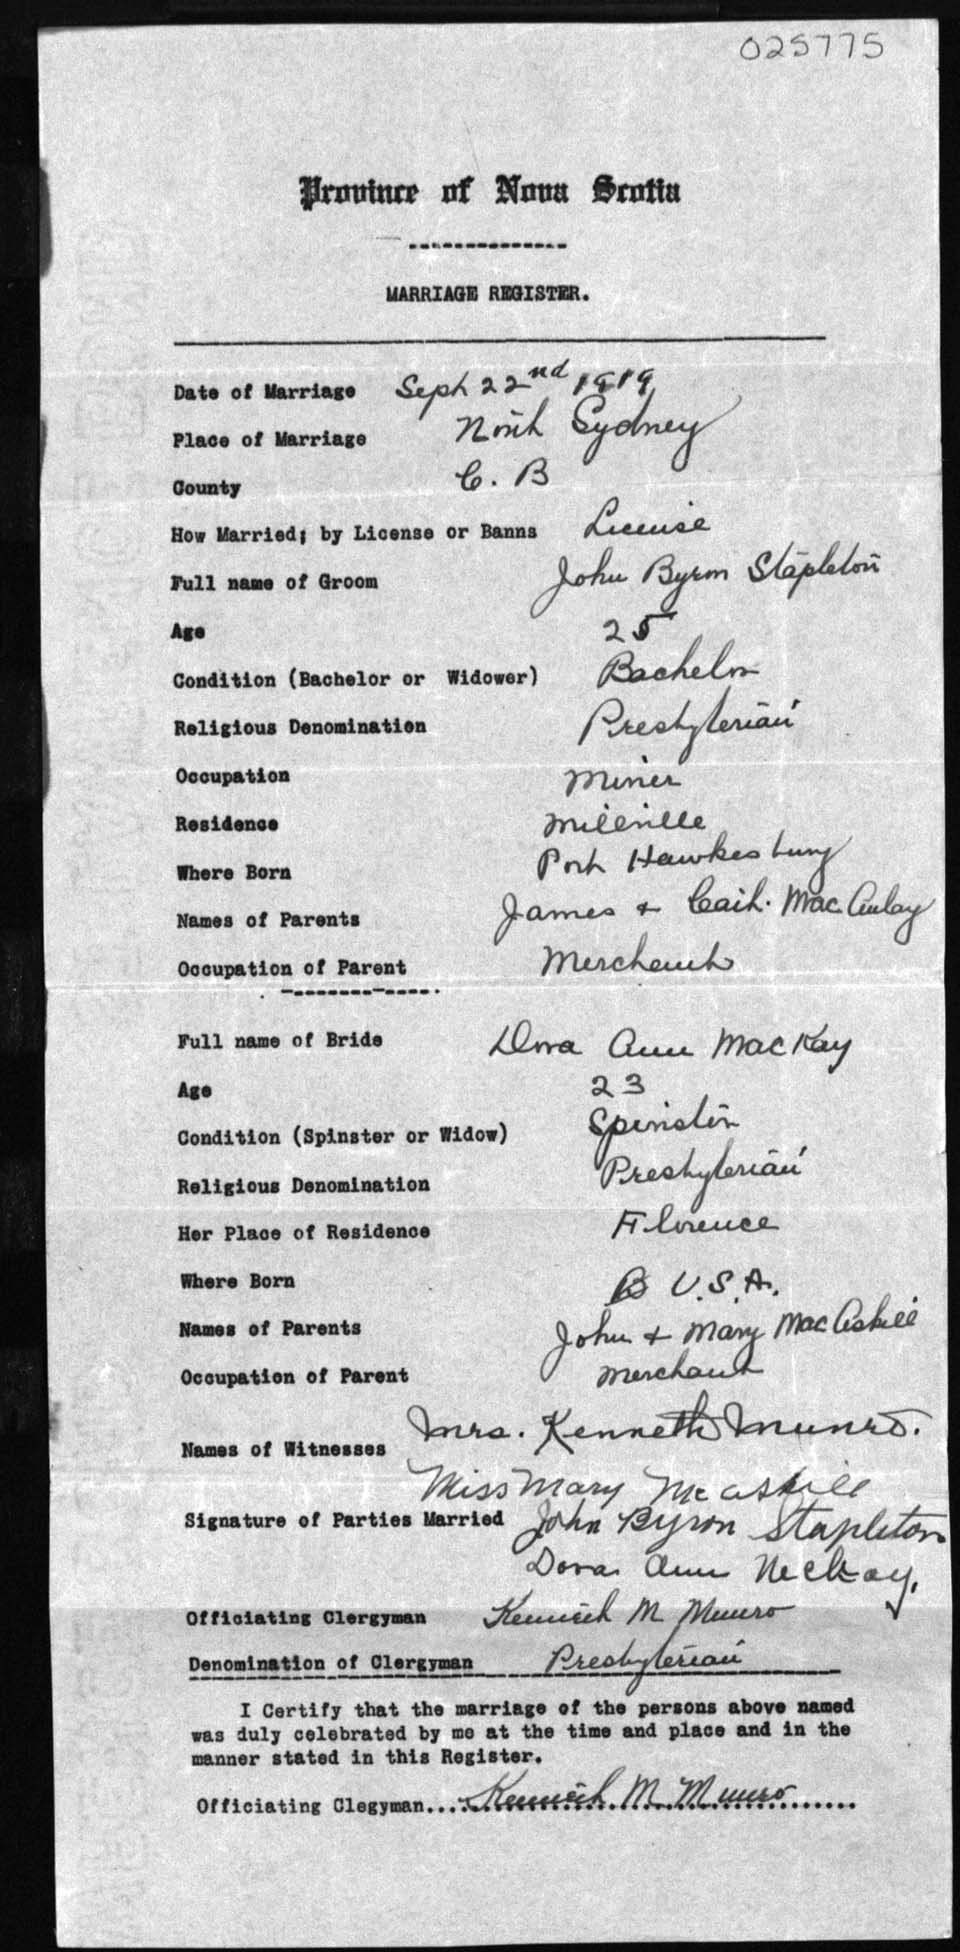 025775
Province of Nova Scotia
MARRIAGE REGISTER.
Date of Marriage Sept 22nd 1919
Place of Marriage North Sydney
County C. B
How Married; by License or Banns License
Full name of Groom John Byron Stapleton
Age 25
Condition (Bachelor or Widower) Bachelor
Religious Denomination Presbyterian
Occupation Miner
Residence Millville
Where Born Port Hawkesbury
Names of Parents James + Cath. MacAulay
Occupation of Parent Merchant
Full name of Bride Dora Ann MacKay
Age 23
Condition (Spinster or Widow) Spinster
Religious Denomination Presbyterian
Her Place of Residence Florence
Where Born B U.S.A.
Names of Parents John + Mary MacAskill
Occupation of Parent Merchant
Names of Witnesses Mrs. Kenneth Munro.
Miss Mary McAskill
Signature of Parties Married John Byron Stapleton
Dora Ann McKay,
Officiating Clergyman Kenneth M Munro
Denomination of Clergyman Presbyterian
I Certify that the marriage of the persons above named
was duly celebrated by me at the time and place and in the
manner stated in this Register.
Officiating Clegyman.... Kenneth M Munro